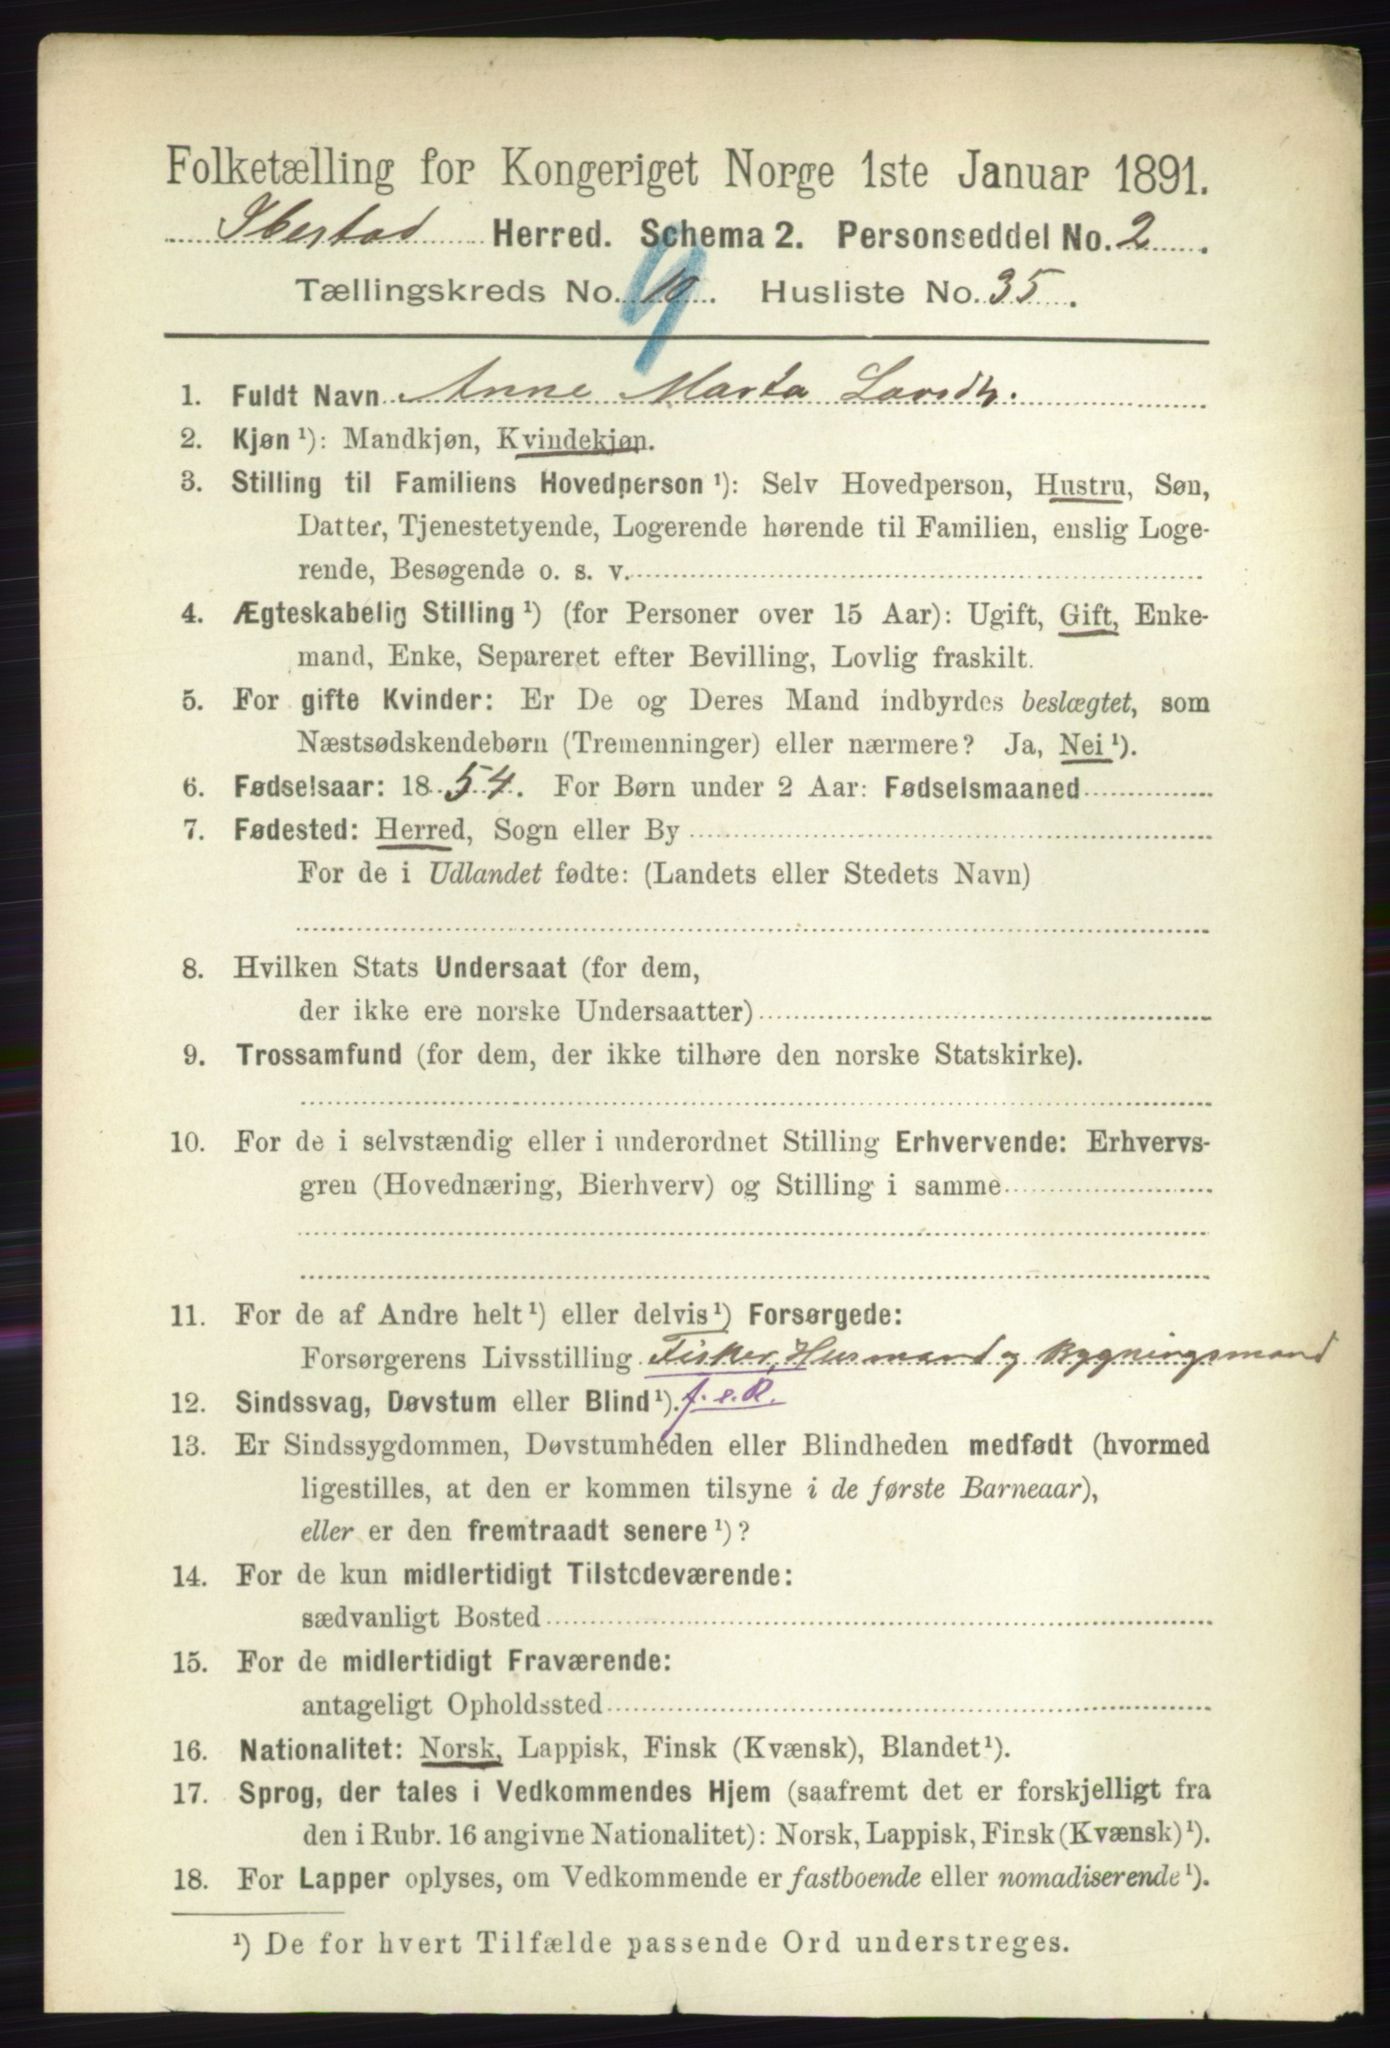 Folketælling for Kongeriget Norge 1ste Januar 1891.
Ibestad Herred. Schema 2. Personseddel No. 2.
Tællingskreds No. 10. Husliste No. 35.
9
1. Fuldt Navn Anne Marta Larsdtr.
2. Kjøn ¹): Mandkjøn, Kvindekjøn.
3. Stilling til Familiens Hovedperson ¹): Selv Hovedperson, Hustru, Søn,
Datter, Tjenestetyende, Logerende hørende til Familien, enslig Loge-
rende, Besøgende o. s. v.
4. Ægteskabelig Stilling ¹) (for Personer over 15 Aar): Ugift, Gift, Enke-
mand, Enke, Separeret efter Bevilling, Lovlig fraskilt.
5. For gifte Kvinder: Er De og Deres Mand indbyrdes beslægtet, som
Næstsødskendebørn (Tremenninger) eller nærmere? Ja, Nei ¹).
6. Fødselsaar: 1854. For Børn under 2 Aar: Fødselsmaaned
7. Fødested: Herred, Sogn eller By
For de i Udlandet fødte: (Landets eller Stedets Navn)
8. Hvilken Stats Undersaat (for dem,
der ikke ere norske Undersaatter)
9. Trossamfund (for dem, der ikke tilhøre den norske Statskirke).
10. For de i selvstændig eller i underordnet Stilling Erhvervende: Erhvervs-
gren (Hovednæring, Bierhverv) og Stilling i samme
11. For de af Andre helt ¹) eller delvis ¹) Forsørgede:
Forsørgerens Livsstilling Fisker, Husmand og Bygningsmand
12. Sindssvag, Døvstum eller Blind ¹). f. e. R.
13. Er Sindssygdommen, Døvstumheden eller Blindheden medfødt (hvormed
ligestilles, at den er kommen tilsyne i de første Barneaar),
eller er den fremtraadt senere ¹)?
14. For de kun midlertidigt Tilstedeværende:
sædvanligt Bosted
15. For de midlertidigt Fraværende:
antageligt Opholdssted
16. Nationalitet: Norsk, Lappisk, Finsk (Kvænsk), Blandet ¹).
17. Sprog, der tales i Vedkommendes Hjem (saafremt det er forskjelligt fra
den i Rubr. 16 angivne Nationalitet): Norsk, Lappisk, Finsk (Kvænsk) ¹).
18. For Lapper oplyses, om Vedkommende er fastboende eller nomadiserende ¹).
¹) De for hvert Tilfælde passende Ord understreges.